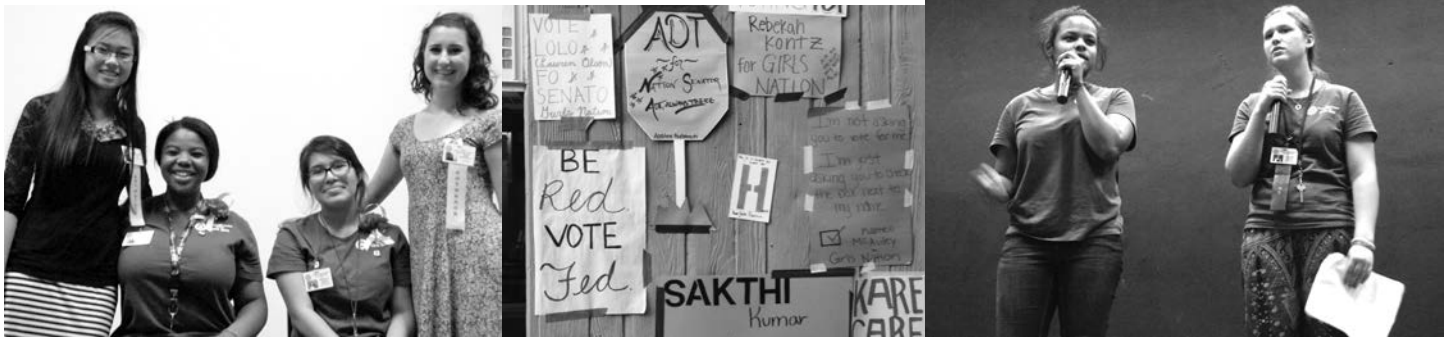 VOTE
LOLO
(Lauren Olsen)
FO
SENATO
Girls Nation
ADT
for
Nation Senator
Rebekah
Kontz
for GIRLS
NATION
I'm not asking
you to vote for me
I'm just
asking you to check
the box next to
my name
McAuley
Girls Nation
BE
Red.
VOTE
Fed.
H
SAKTHI
Kumar
KARE
CARE